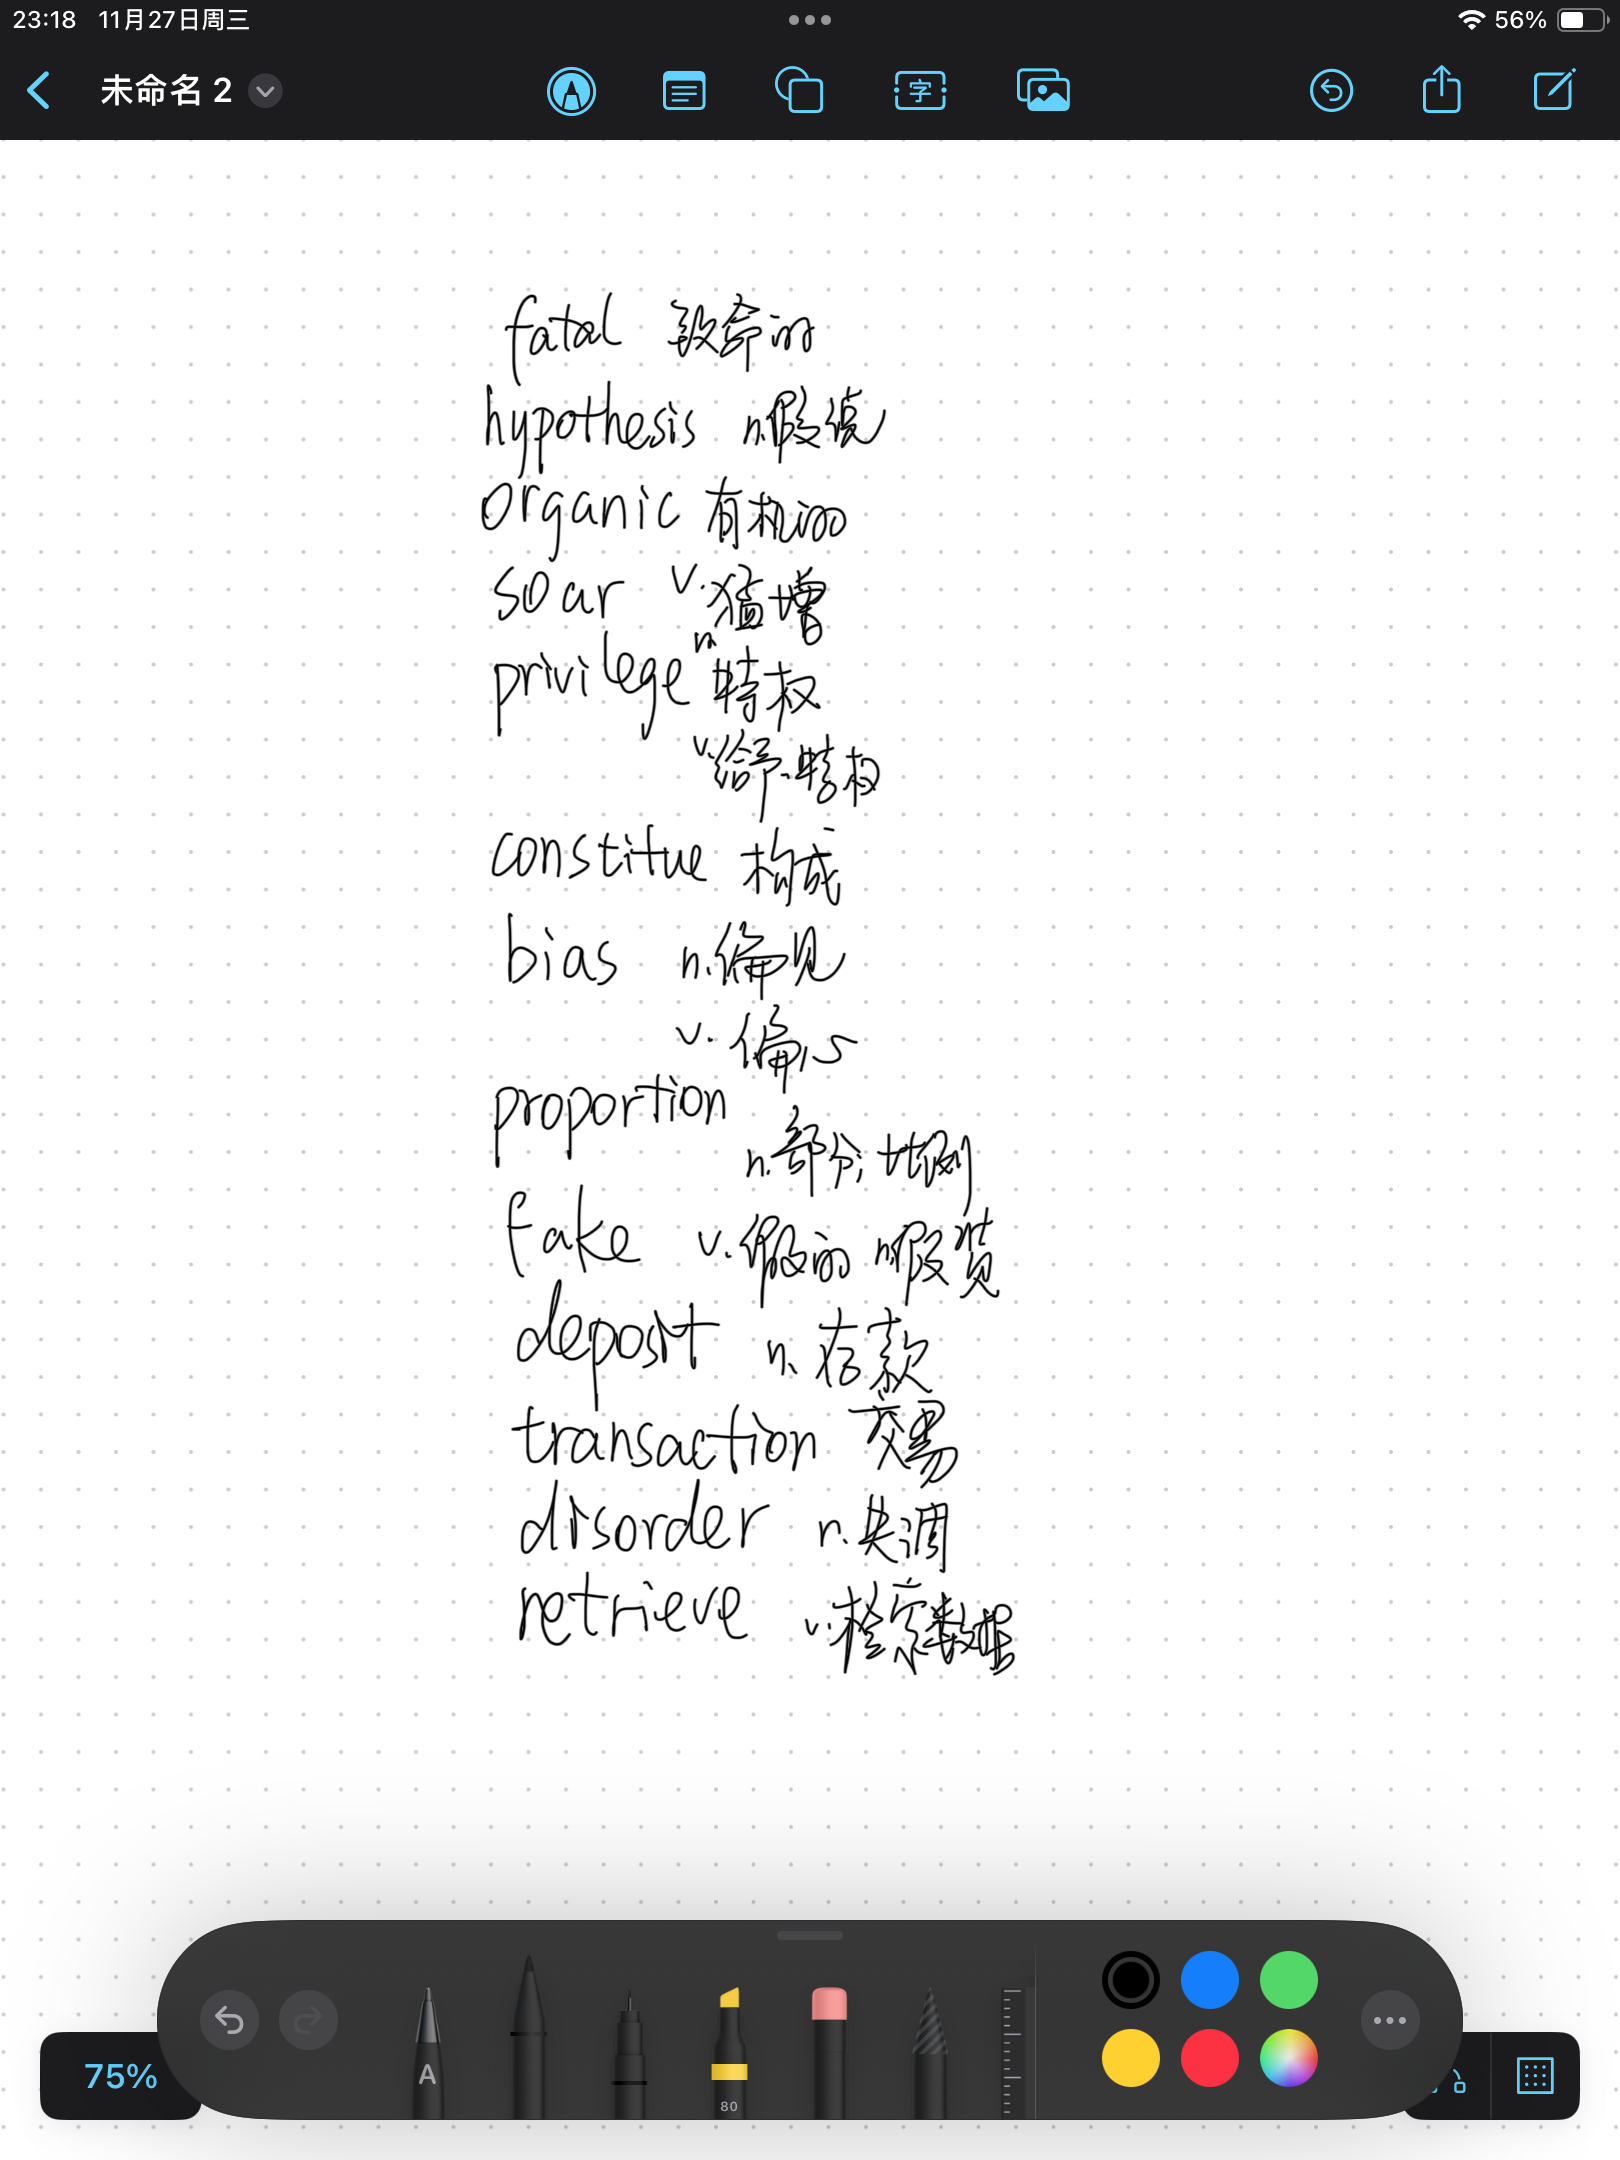 23:18 11月27日周三
56%
未命名 2
字
fatal 致命的
hypothesis n.假说
organic 有机的
soar v.猛增
privilege n.特权
v.给予..特权
constitue 构成
bias n.偏见
v.偏心
proportion
n.部分;比例
fake v.假的 n.假货
deposit n.存款
transaction 交易
disorder n.失调
retrieve v.检索数据
A
80
75%